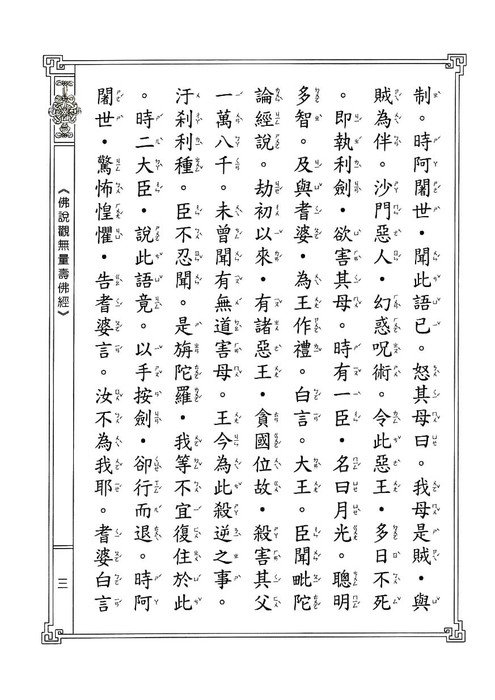 制。時阿闍世・聞此語已。怒其母曰。我母是賊・與
賊為伴。沙門惡人・幻惑呪術。令此惡王・多日不死
。即執利劍・欲害其母。時有一臣・名曰月光。聰明
多智。及與耆婆・為王作禮。白言。大王。臣聞毗陀
論經說。劫初以來・有諸惡王・貪國位故・殺害其父
一萬八千。未曾聞有無道害母。王今為此殺逆之事。
汙剎利種。臣不忍聞。是旃陀羅・我等不宜復住於此
。時二大臣・說此語竟。以手按劍・卻行而退。時阿
闍世・驚怖惶懼・告耆婆言。汝不為我耶。耆婆白言
《佛說觀無量壽佛經》
三